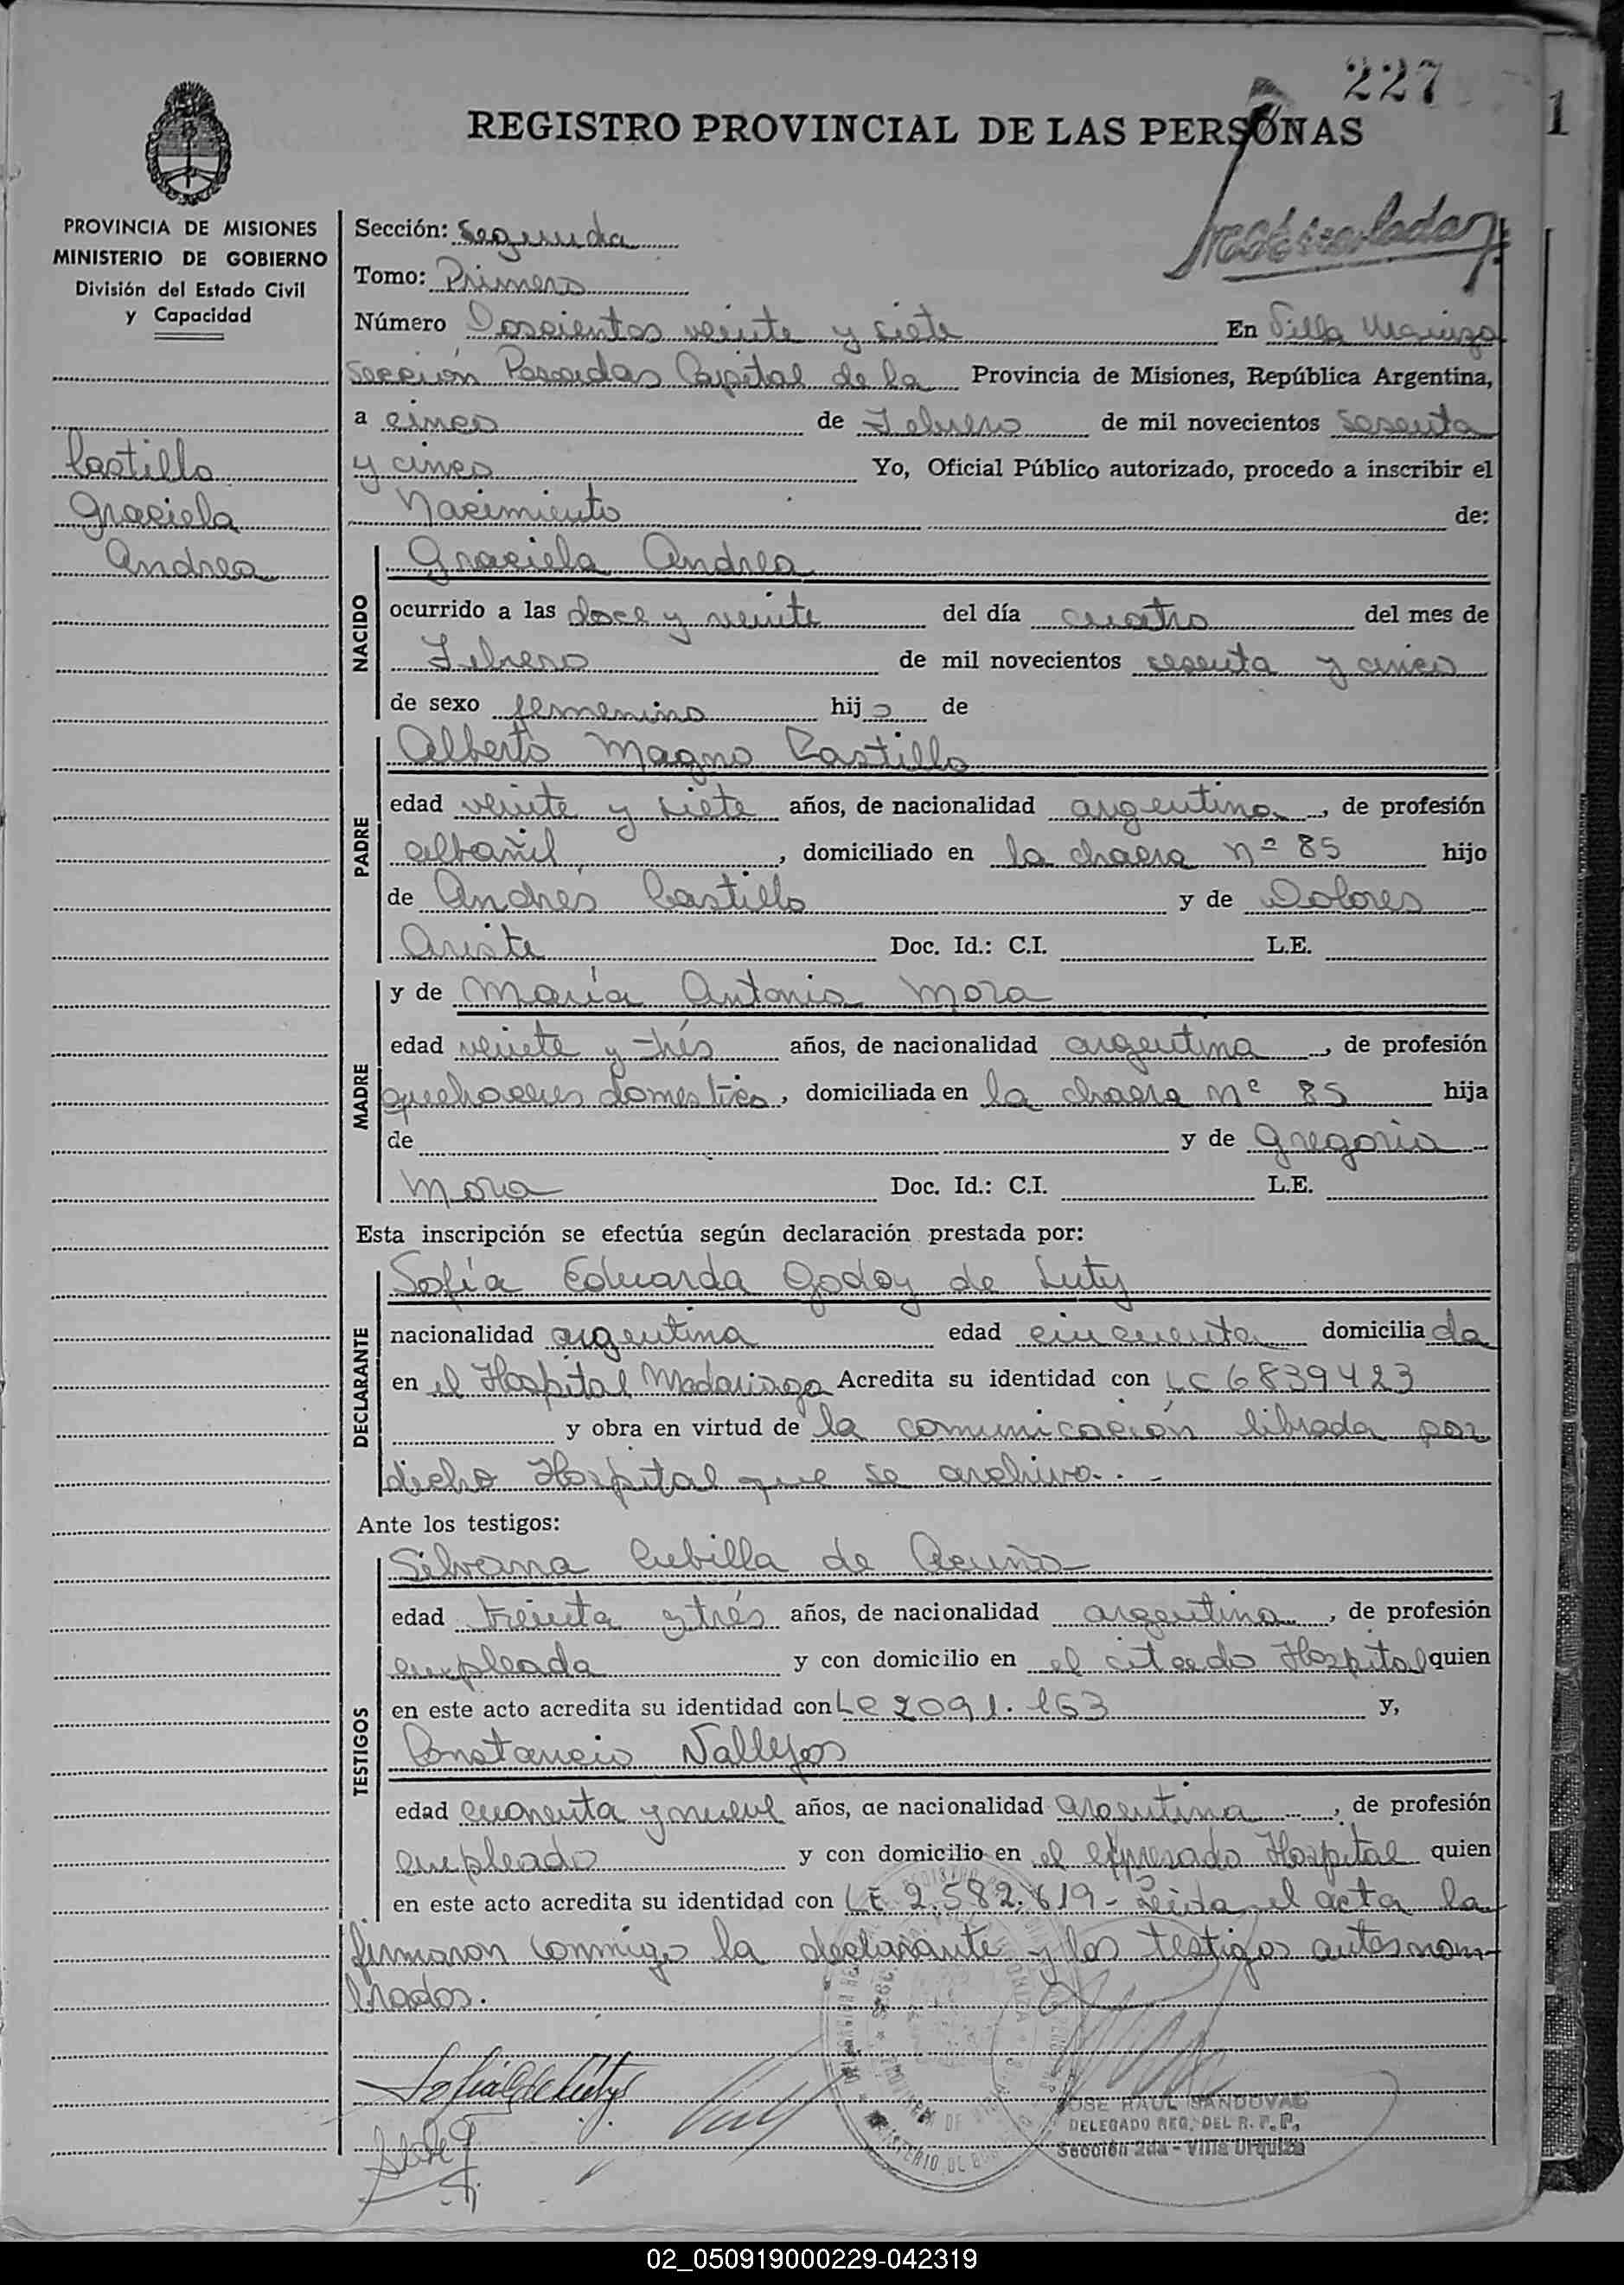 227
1
REGISTRO PROVINCIAL DE LAS PERSONAS
PROVINCIA DE MISIONES
MINISTERIO DE GOBIERNO
División del Estado Civil
y Capacidad
Castillo
Graciela
Andrea
Sección: Segunda
Tomo: Primero
Número Doscientos veinte y siete En Villa Urquiza
Sección Posadas Capital de la Provincia de Misiones, República Argentina,
a cinco de Febrero de mil novecientos sesenta
y cinco Yo, Oficial Público autorizado, procedo a inscribir el
Nacimiento de:
NACIDO
Graciela Andrea
ocurrido a las doce y veinte del día cuatro del mes de
Febrero de mil novecientos sesenta y cinco
de sexo femenino hija de
PADRE
Alberto Magno Castillo
edad veinte y siete años, de nacionalidad argentina, de profesión
albañil, domiciliado en la chacra nº 85 hijo
de Andrés Castillo y de Dolores
Doc. Id.: C.I. L.E.
MADRE
y de María Antonia Mora
edad veinte y trés años, de nacionalidad argentina, de profesión
quehaceres domestico, domiciliada en la chacra nº 85 hija
de y de Gregoria
Mora Doc. Id.: C.I. L.E.
Esta inscripción se efectúa según declaración prestada por:
DECLARANTE
Sofía Eduarda Godoy de Luty
nacionalidad argentina edad cincuenta domiciliada
en el Hospital Madariaga Acredita su identidad con LC 6839423
y obra en virtud de la comunicación librada por
dicho Hospital que se archiva.-
Ante los testigos:
TESTIGOS
Silvana Cubilla de Acuña
edad treinta y trés años, de nacionalidad argentina, de profesión
empleada y con domicilio en el citado Hospital quien
en este acto acredita su identidad con LC 2091.163 y,
Constancio Vallejos
edad cuarenta y nueve años, de nacionalidad argentina, de profesión
empleado y con domicilio en el expresado Hospital quien
en este acto acredita su identidad con LE 2.582.619- Leida el acta la
firmaron conmigo la declarante y los testigos antesnom-
brados.
JOSE RAUL SANDOVAL
DELEGADO REG. DEL R. P. P.
Sección 2da - Villa Urquiza
02_050919000229-042319